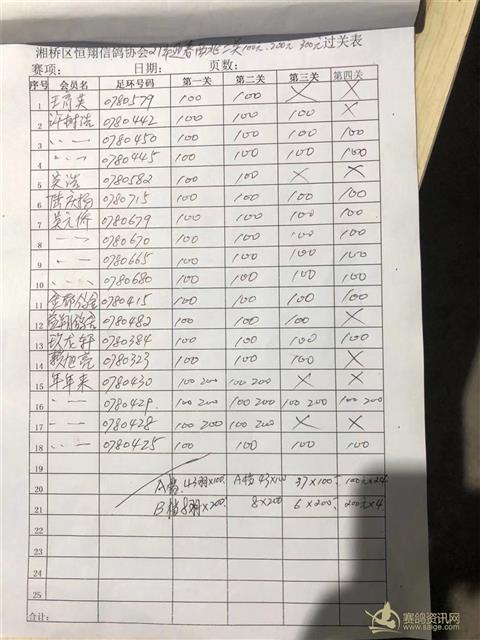 湘桥区恒翔信鸽协会21年迎春南北二关100元.200元 300元过关表
赛项: 日期: 页数:
序号 会员名 足环号码 第一关 第二关 第三关 第四关
1 王育英 0780579 100 100 X X
2 许树浩 0780442 100 100 100 X
3 〃 一 0780450 100 100 100 100
4 〃 一 0780445 100 100 100 100
5 吴浩 0780582 100 100 X X
6 陆庆杨 0780715 100 100 100 100
7 吴元侨 0780679 100 100 100 100
8 一 〃 0780670 100 100 100 100
9 〃 一 0780665 100 100 100 100
10 〃 一 0780680 100 100 100 100
11 0780415 100 100 100 100
12 0780482 100 100 100 X
13 玖龙轩 0780384 100 100 100 100
14 赖旭亮 0780323 100 100 100 X
15 年年来 0780430 100 200 100 200 X X
16 〃 一 0780429 100 200 100 200 100 200 100 200
17 〃 一 0780428 100 200 100 200 X X
18 〃 一 0780425 100 100 100 100
19
20 A档43羽×100 A档43×100 37×100 100元×24
21 B档8羽×200 8×200 6×200 200元×4
22
23
24
25
合计:
赛鸽资讯网
www.saige.com